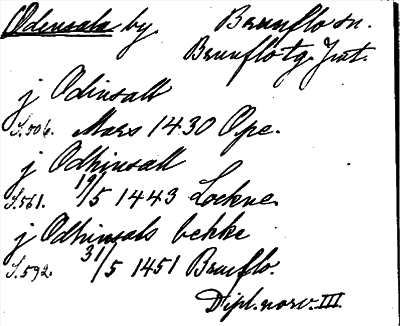 Odensala by Brunflo sn.
Brunflo tg. Jmt.
j Odinsall
S.506. Mars 1430 Ope.
j Odhinsall
S.561. 19/5 1443 Lockne.
j Odhinsals bekke
S.592. 31/5 1451 Brunflo.
Dipl. norv. III.